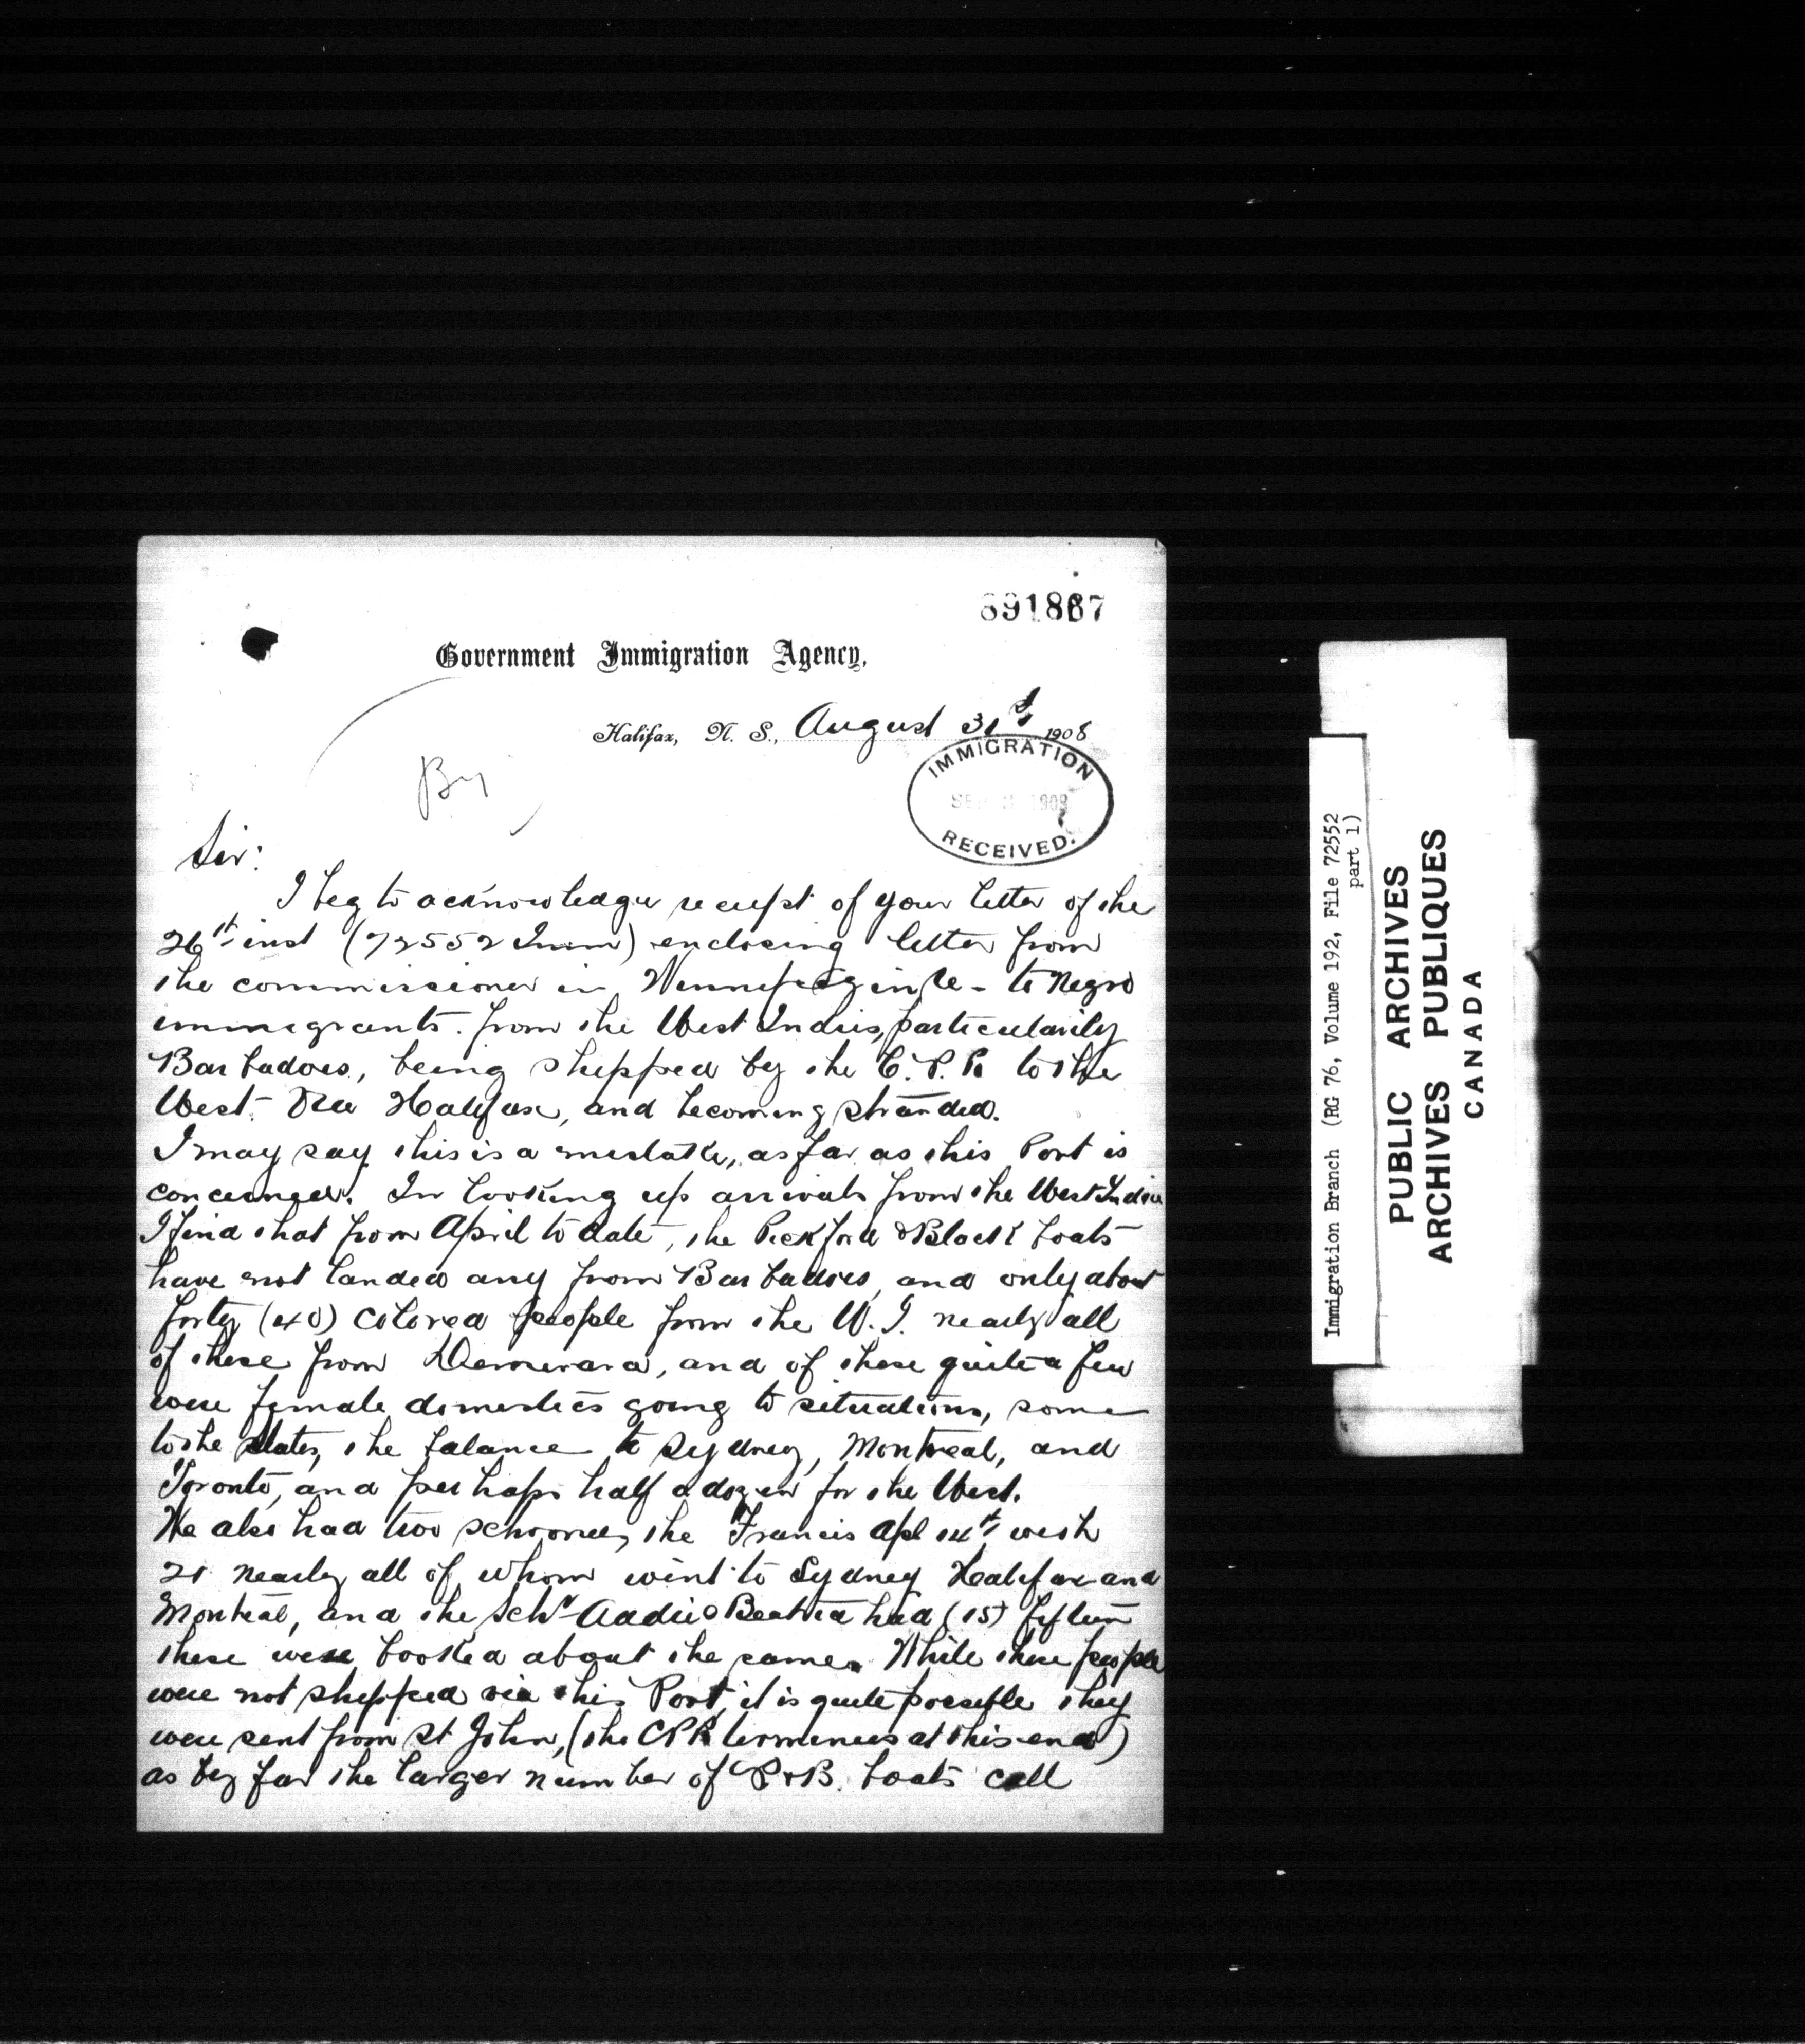 691867
Government Immigration Agency,
Halifax, N. S., August 31st 1908
IMMIGRATION
SEP 3 1908
RECEIVED.
By
Sir:
I beg to acknowledge receipt of your letter of the
26th inst (72552 Imm) enclosing letter from
the commissioner in Winnipeg in re - to Negro
immigrants from the West Indies, particularily
Barbadoes, being shipped by the C.P.R to the
West Via Halifax, and becoming stranded.
I may say this is a mistake, as far as this Port is
concerned. In looking up arrivals from the West Indies
I find that from April to date, the Pickford & Black boats
have not landed any from Barbadoes, and only about
forty (40) colored people from the W.I. nearly all
of these from Demerara, and of these quite a few
were female domestics going to situations, some
to the States, the balance to Sydney, Montreal, and
Toronto, and perhaps half a dozen for the West.
We also had two schooners, the Francis Apl 14th with
21 nearly all of whom went to Sydney Halifax and
Montreal, and the Schr Addie & Beatrice had (15) fifteen
these were booked about the same. While these people
were not shipped via this Port, it is quite possible they
were sent from St John, (the CPR terminus at this end)
as by far the larger number of P&B. boats call
Immigration Branch (RG 76, Volume 192, File 72552
part 1)
PUBLIC ARCHIVES
ARCHIVES PUBLIQUES
CANADA